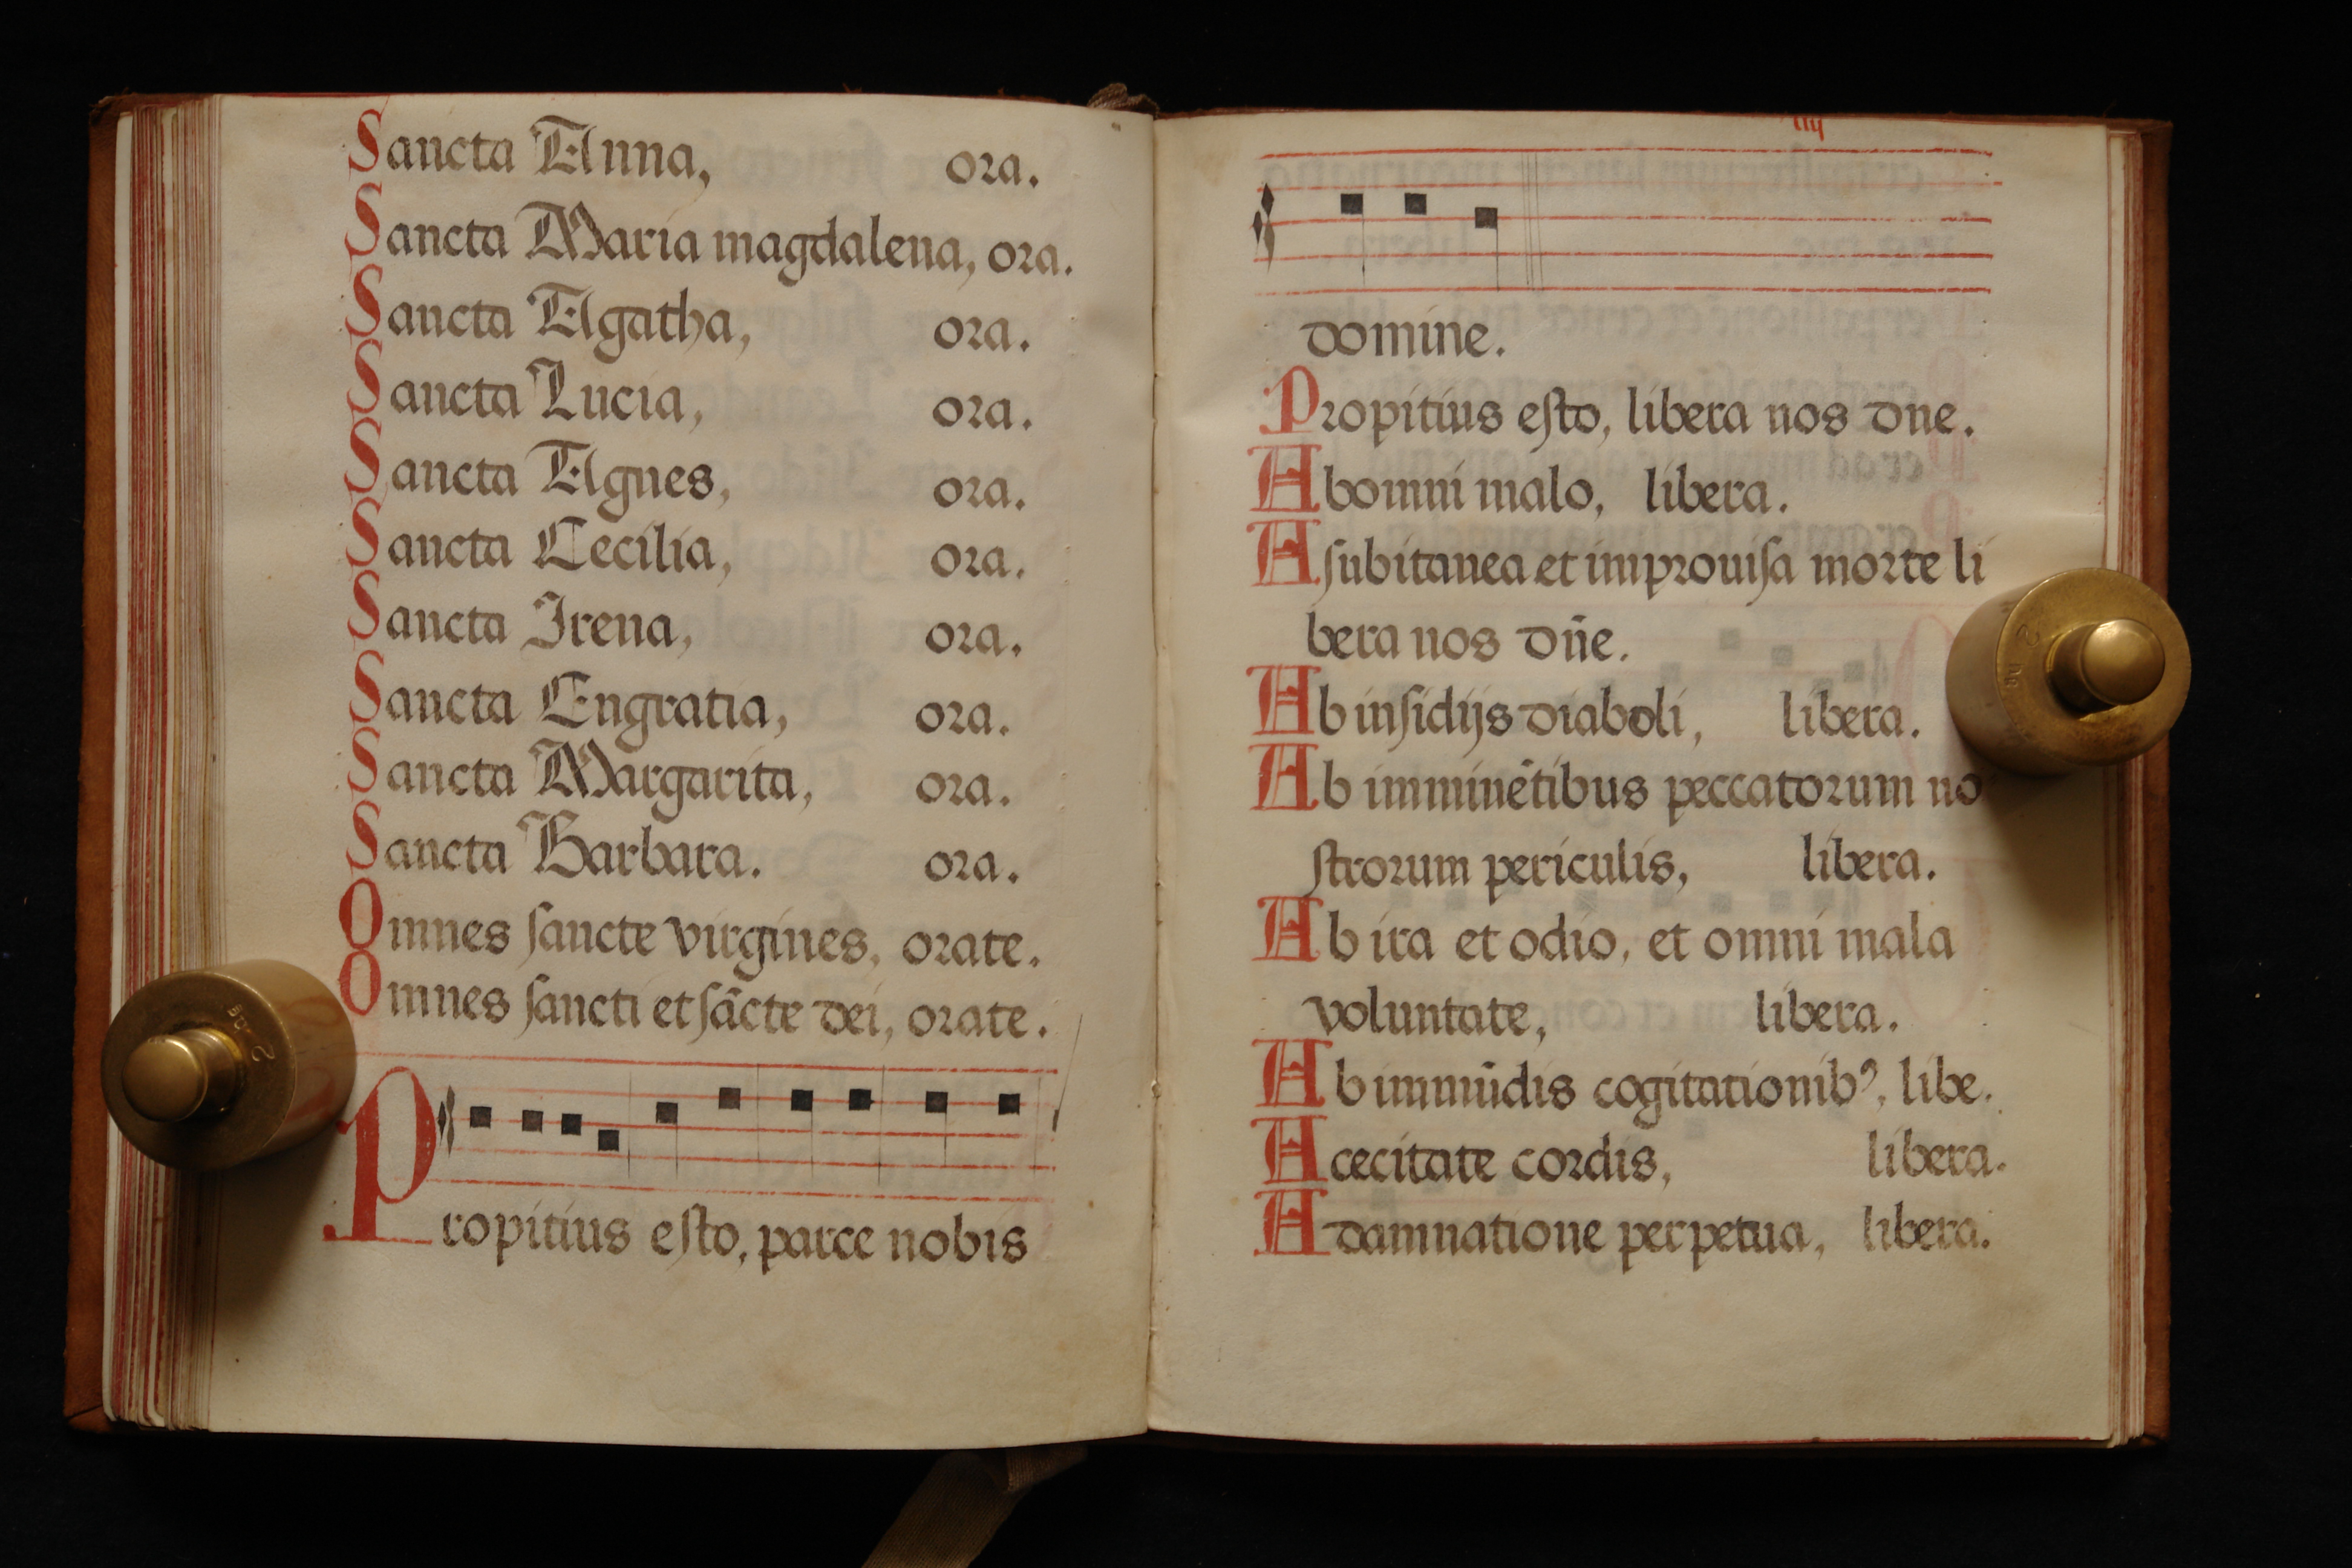 Sancta Anna, ora.
Sancta Maria magdalena, ora.
Sancta Agatha, ora.
Sancta Lucia, ora.
Sancta Agnes, ora.
Sancta Cecilia, ora.
Sancta Irena, ora.
Sancta Engratia, ora.
Sancta Margarita, ora.
Sancta Barbara. ora.
Omnes sancte virgines, orate.
Omnes sancti et sãcte dei, orate.
Propitius esto, parce nobis
iiij
domine.
Propitius esto, libera nos dne.
Ab omni malo, libera.
A subitanea et improuisa morte li
bera nos dñe.
Ab insidijs diaboli, libera.
Ab imminẽtibus peccatorum no
strorum periculis, libera.
Ab ira et odio, et omni mala
voluntate, libera.
Ab immũdis cogitationibꝰ, libe.
A cecitate cordis, libera.
A damnatione perpetua, libera.